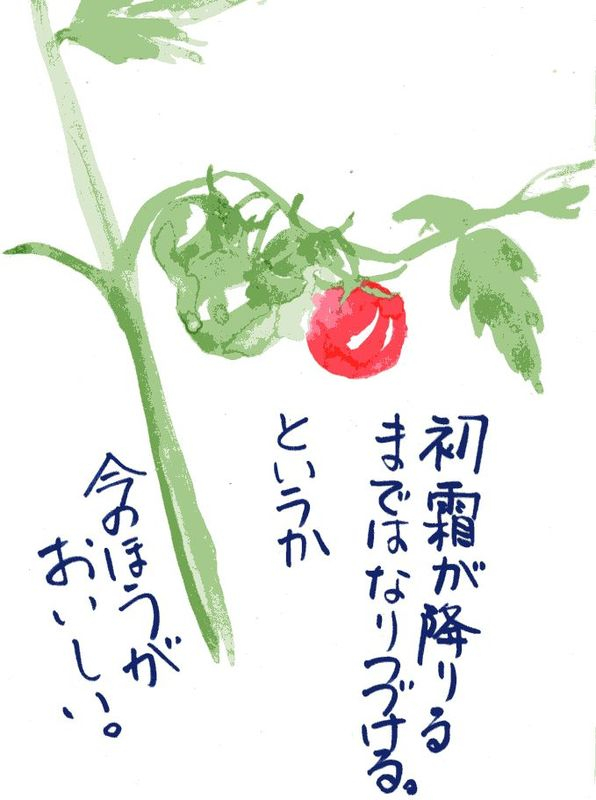 初霜が降りる
まではなりつづける。
というか
今のほうが
おいしい。